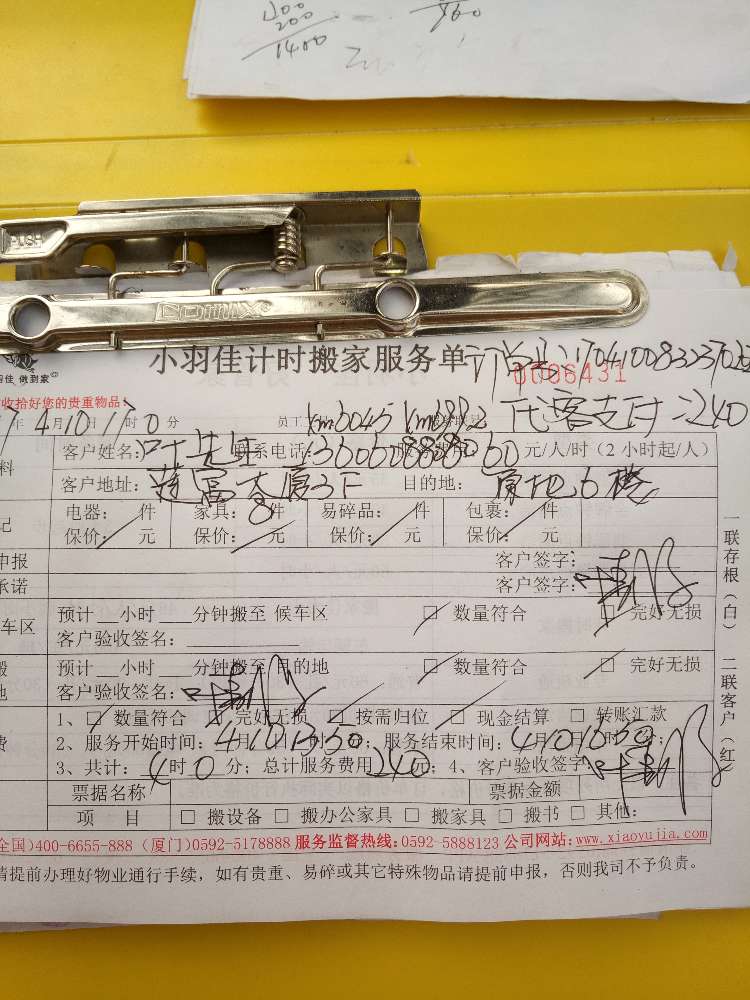 200
1400
PUSH
COMIX
小羽佳计时搬家服务单
0006431
羽佳 做到家
收拾好您的贵重物品
代客支付:240
年4月10 时0分 员工工号 km6045
客户姓名:叶先生 联系电话: 60元/人/时(2小时起/人)
客户地址: 大厦3下 目的地: 原地6楼
电器: 件 家具:8件 易碎品: 件 包裹: 件
保价: 元 保价: 元 保价: 元 保价: 元
申报 客户签字:
承诺 客户签字:
车区 预计 小时 分钟搬至 候车区 □ 数量符合 □ 完好无损
客户验收签名:
预计 小时 分钟搬至 目的地 □ 数量符合 □ 完好无损
客户验收签名:
1、□ 数量符合 □ 完好无损 □ 按需归位 □ 现金结算 □ 转账汇款
2、服务开始时间:4月10日13时50;服务结束时间:4月10日
3、共计:4时0分;总计服务费用240元;4、客户验收签字
票据名称 票据金额
项 目 □ 搬设备 □ 搬办公家具 □ 搬家具 □ 搬书 □ 其他:
全国)400-6655-888 (厦门)0592-5178888 服务监督热线:0592-5888123 公司网站:www.xiaoyujia.com
请提前办理好物业通行手续,如有贵重、易碎或其它特殊物品请提前申报,否则我司不予负责。
一联存根(白) 二联客户(红)